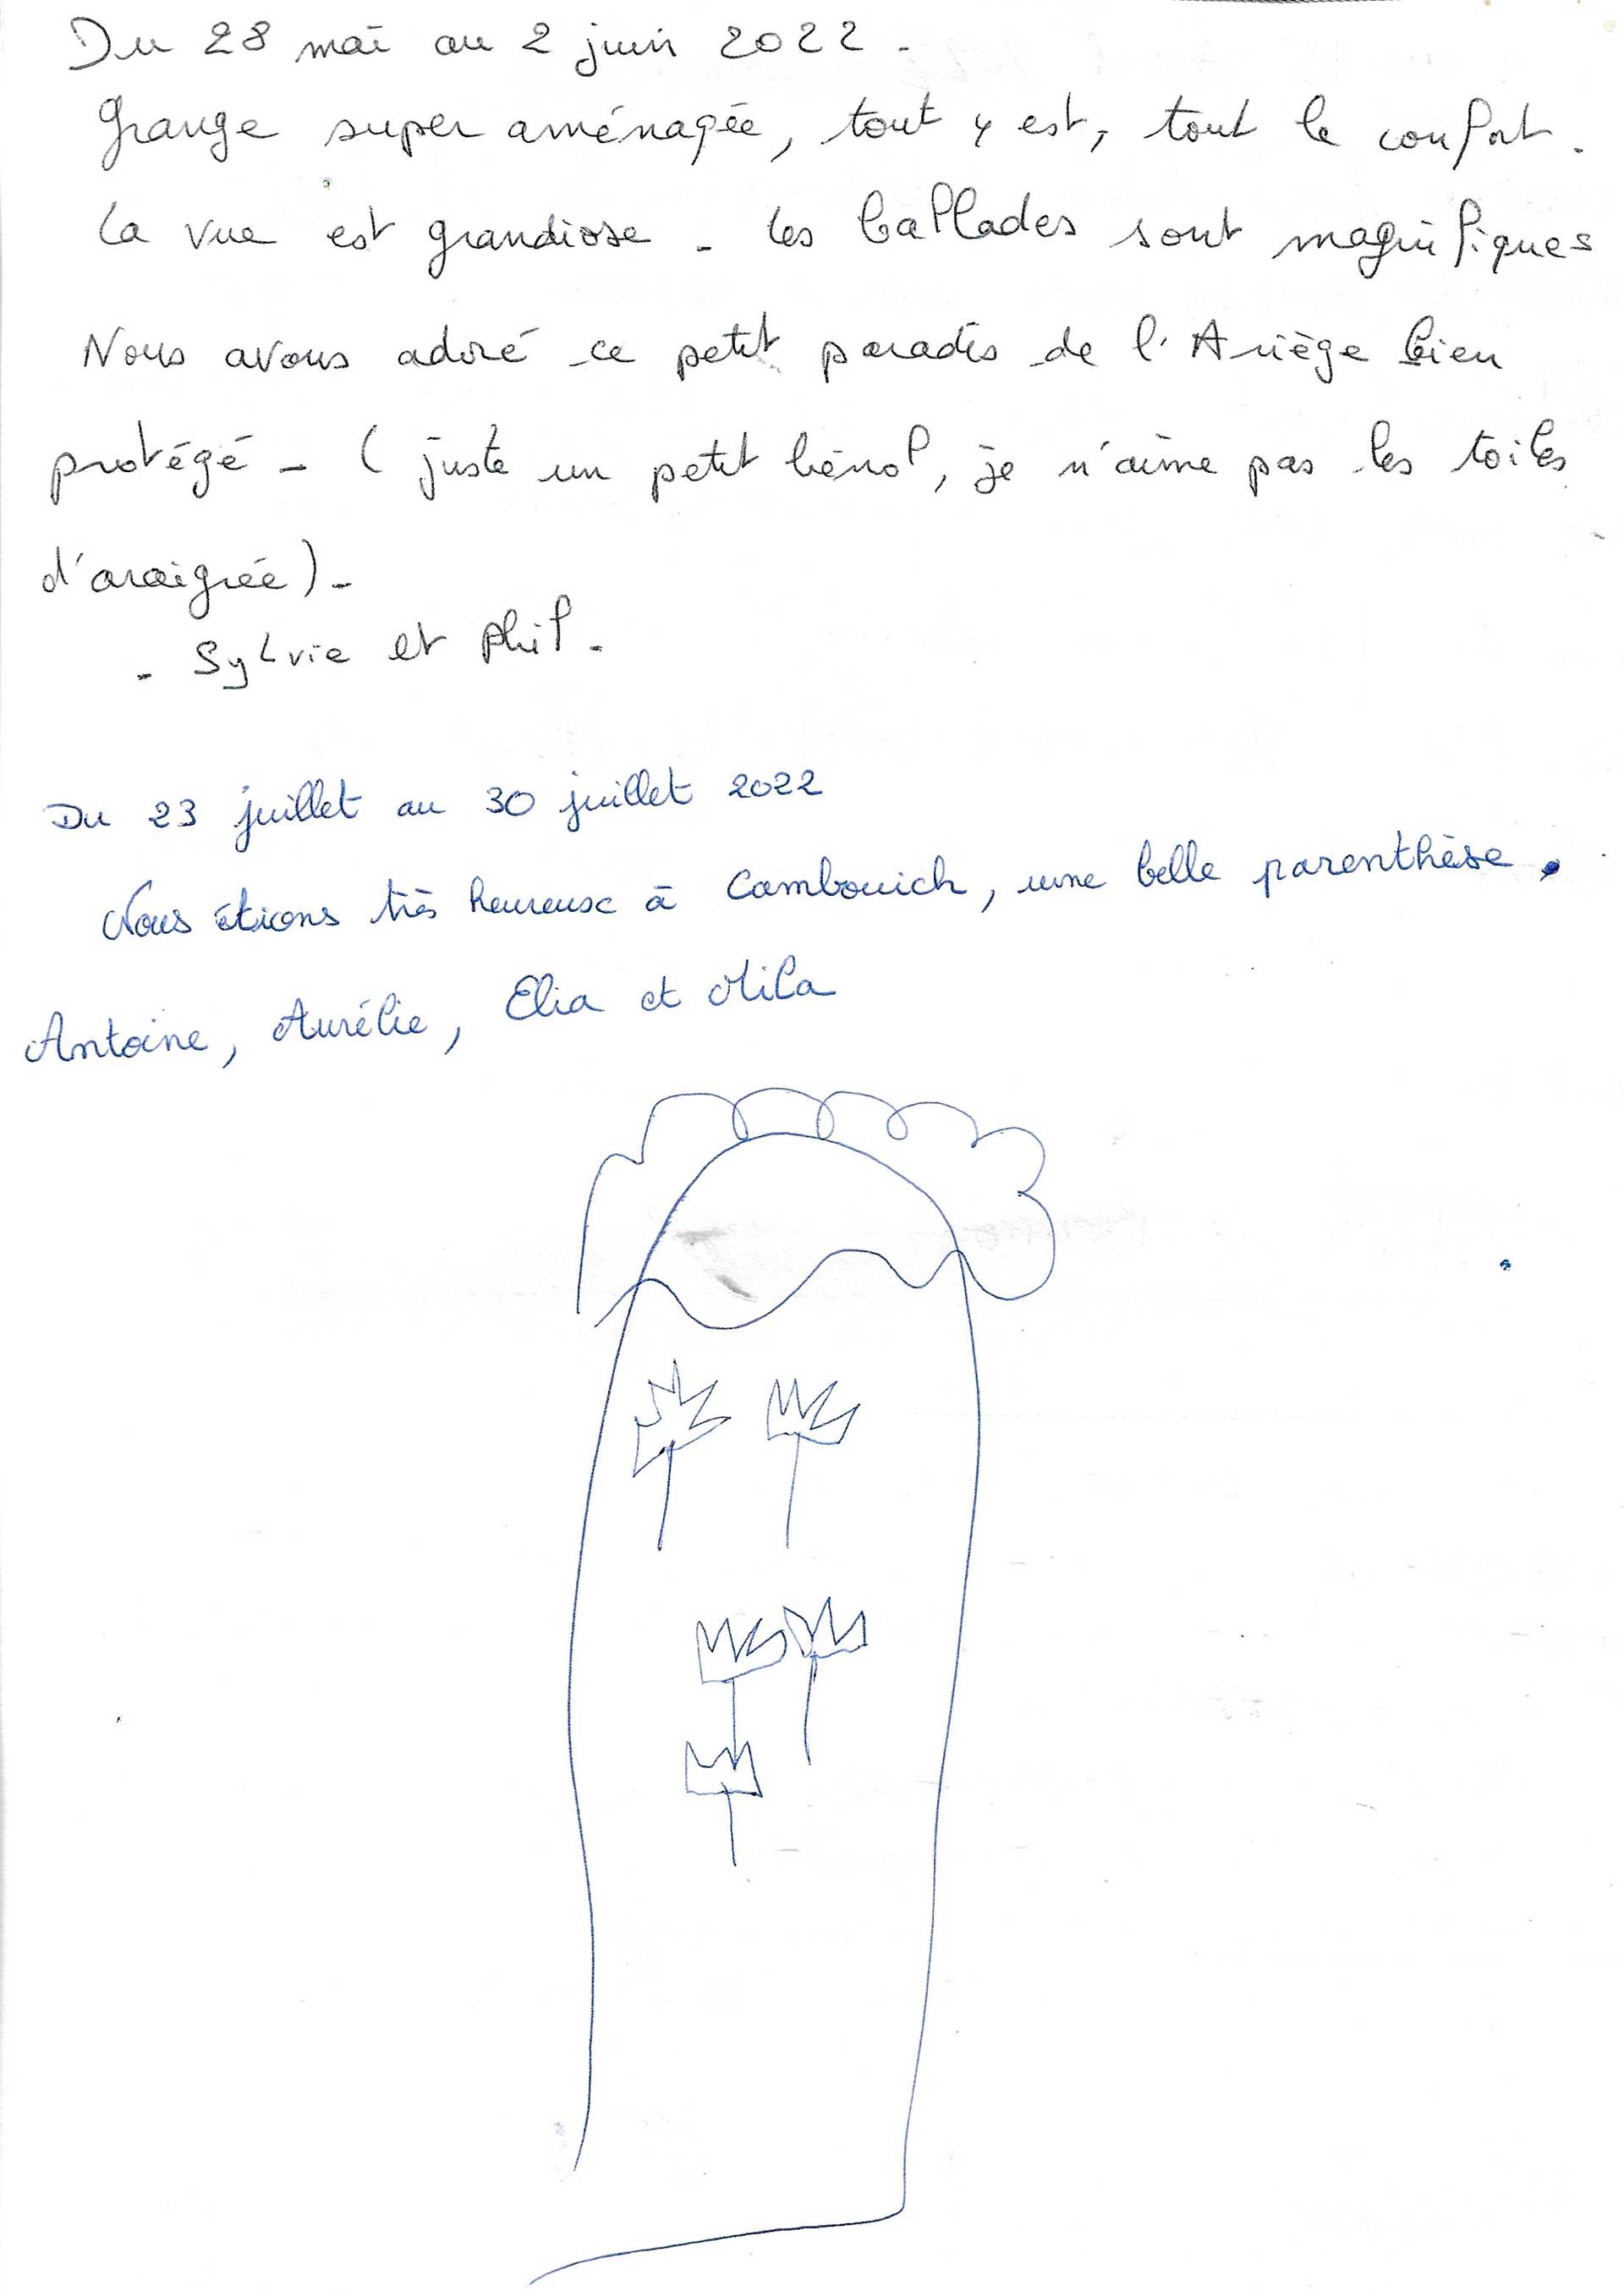 Du 28 mai au 2 juin 2022.
Grange super aménagée, tout y est, tout le confort.
La vue est grandiose - les ballades sont magnifiques
Nous avons adoré ce petit paradis de l'Ariège bien
protégé - (juste un petit bémol, je n'aime pas les toiles
d'araignée) -
- Sylvie et Phil.
Du 23 juillet au 30 juillet 2022
Nous étions très heureux à Cambouich, une belle parenthèse.
Antoine, Aurélie, Elia et Mila